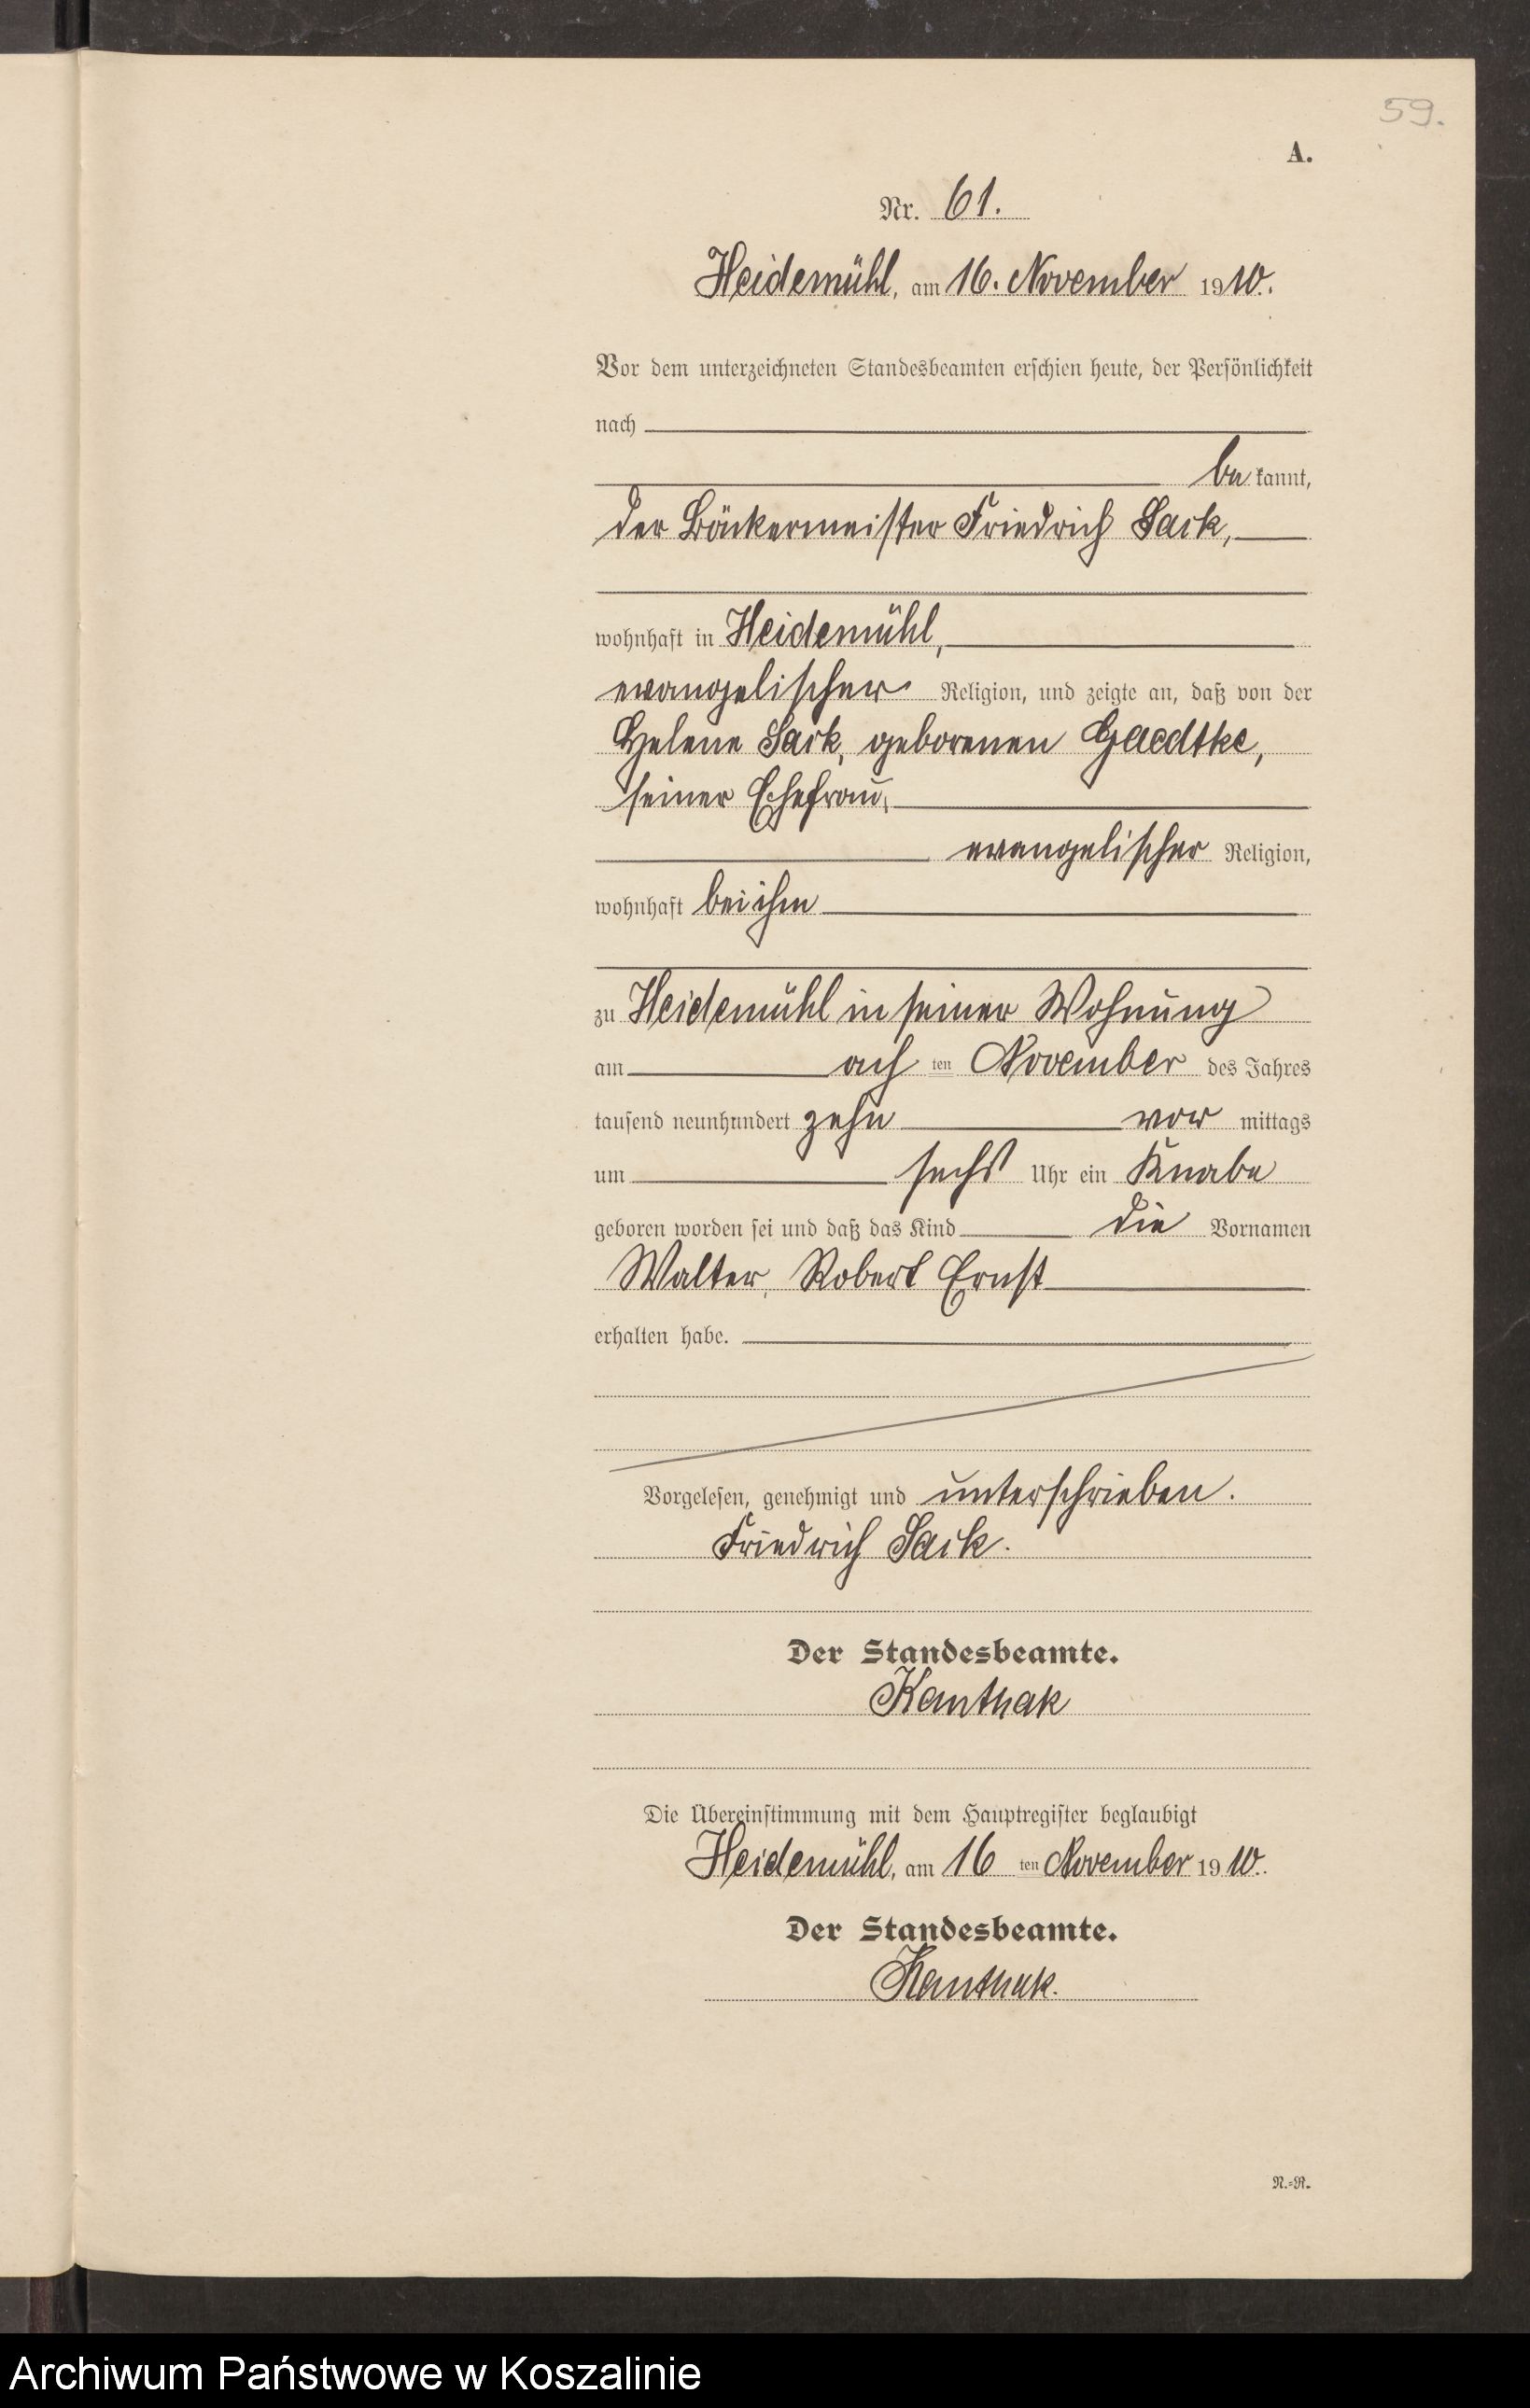 59.
A.
Nr. 61.
Heidemühl, am 16. November 1910.
Vor dem unterzeichneten Standesbeamten erschien heute, der Persönlichkeit
nach
be kannt,
der Bäckermeister Friedrich Sack,
wohnhaft in Heidemühl,
evangelischer Religion, und zeigte an, daß von der
Helene Sack, geborenen Gaedtke,
seiner Ehefrau,
evangelischer Religion,
wohnhaft bei ihm
zu Heidemühl in seiner Wohnung
am ach ten November des Jahres
tausend neunhundert zehn vor mittags
um sechs Uhr ein Knabe
geboren worden sei und daß das Kind die Vornamen
Walter, Robert Ernst
erhalten habe.
Vorgelesen, genehmigt und unterschrieben.
Friedrich Sack.
Der Standesbeamte.
Kanthak
Die Übereinstimmung mit dem Hauptregister beglaubigt
Heidemühl, am 16 ten November 1910.
Der Standesbeamte.
Kanthak.
N.=R.
Archiwum Państwowe w Koszalinie